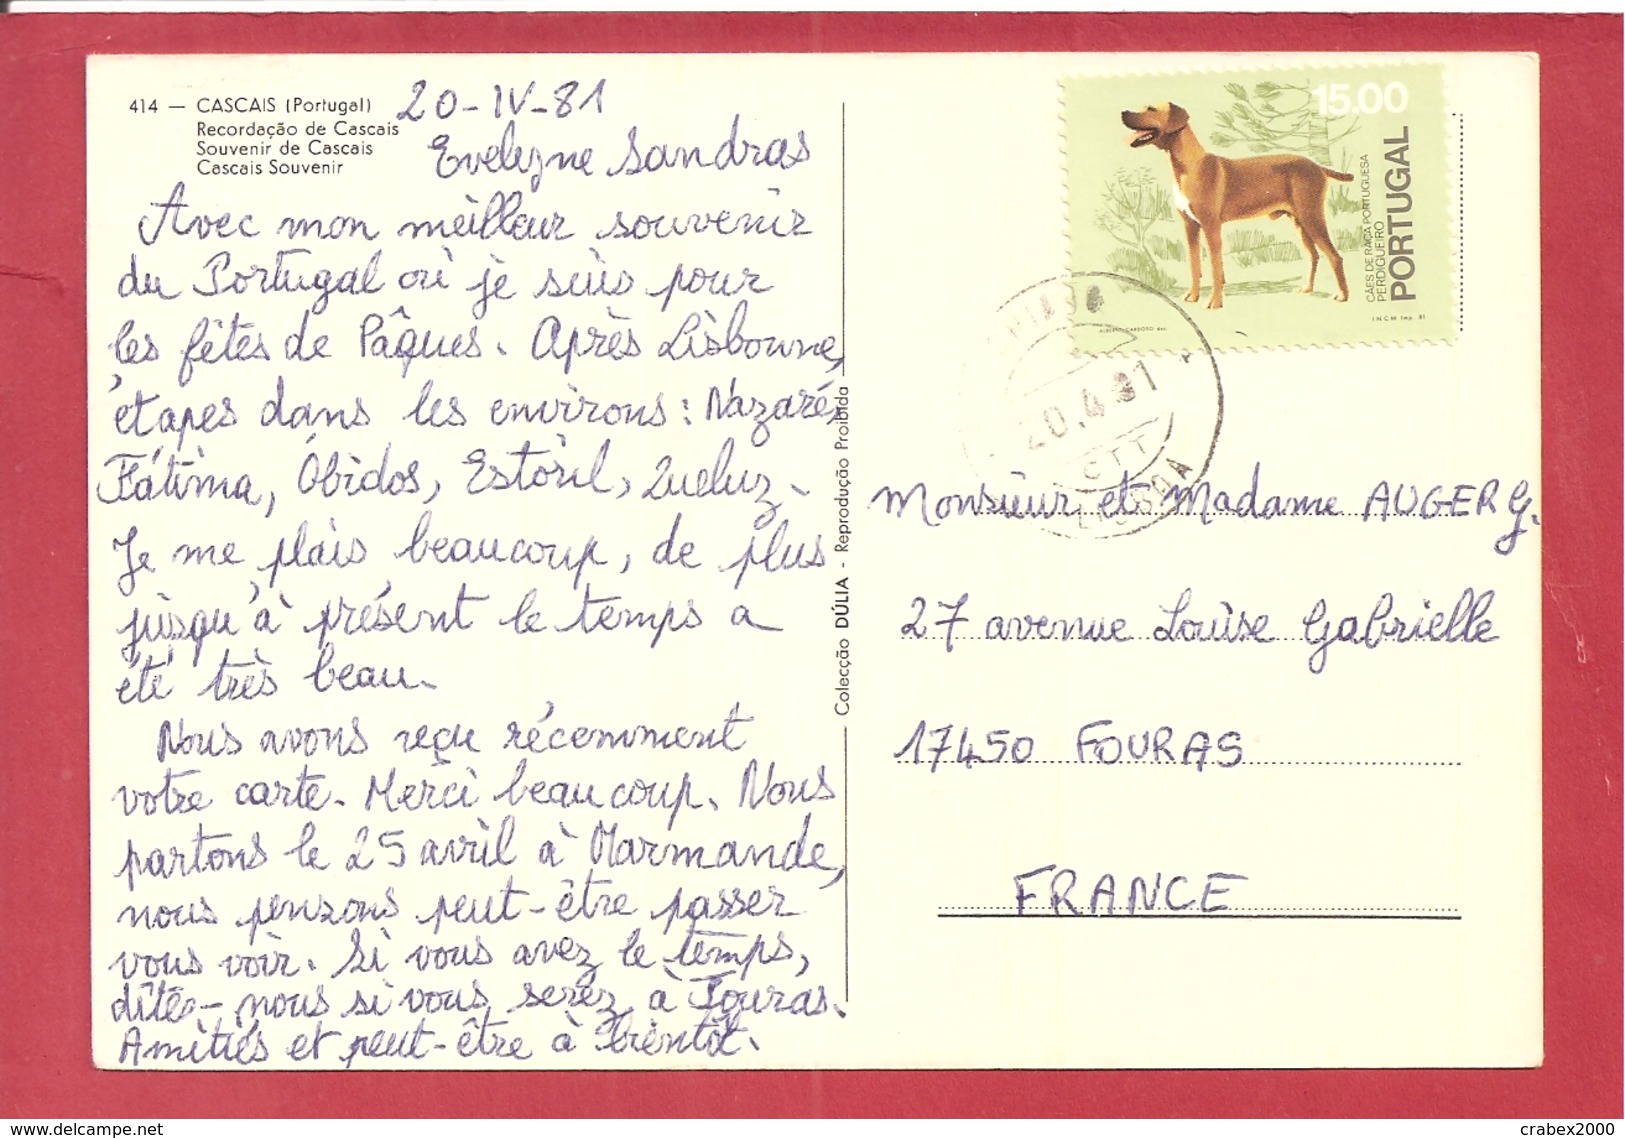 414 — CASCAIS (Portugal)
Recordação de Cascais
Souvenir de Cascais
Cascais Souvenir
20-IV-81
Evelyne Sandras
Avec mon meilleur souvenir
du Portugal où je suis pour
les fêtes de Pâques. Après Lisbonne,
étapes dans les environs : Nazaré,
Fátima, Óbidos, Estoril, Queluz.
Je me plais beaucoup, de plus
jusqu'à présent le temps a
été très beau.
Nous avons reçu récemment
votre carte. Merci beaucoup. Nous
partons le 25 avril à Marmande,
nous pensons peut-être passer
vous voir. Si vous avez le temps,
dites-nous si vous serez à Fouras.
Amitiés et peut-être à bientôt.
Colecção DÚLIA - Reprodução Proibida
15.00
CÃES DE RAÇA PORTUGUESA
PERDIGUEIRO
PORTUGAL
ALBERTO CARDOSO des.
INCM Imp. 81
20.4.81
CTT
LISBOA
Monsieur et Madame AUGER G.
27 avenue Louise Gabrielle
17450 FOURAS
FRANCE
www.delcampe.net
crabex2000